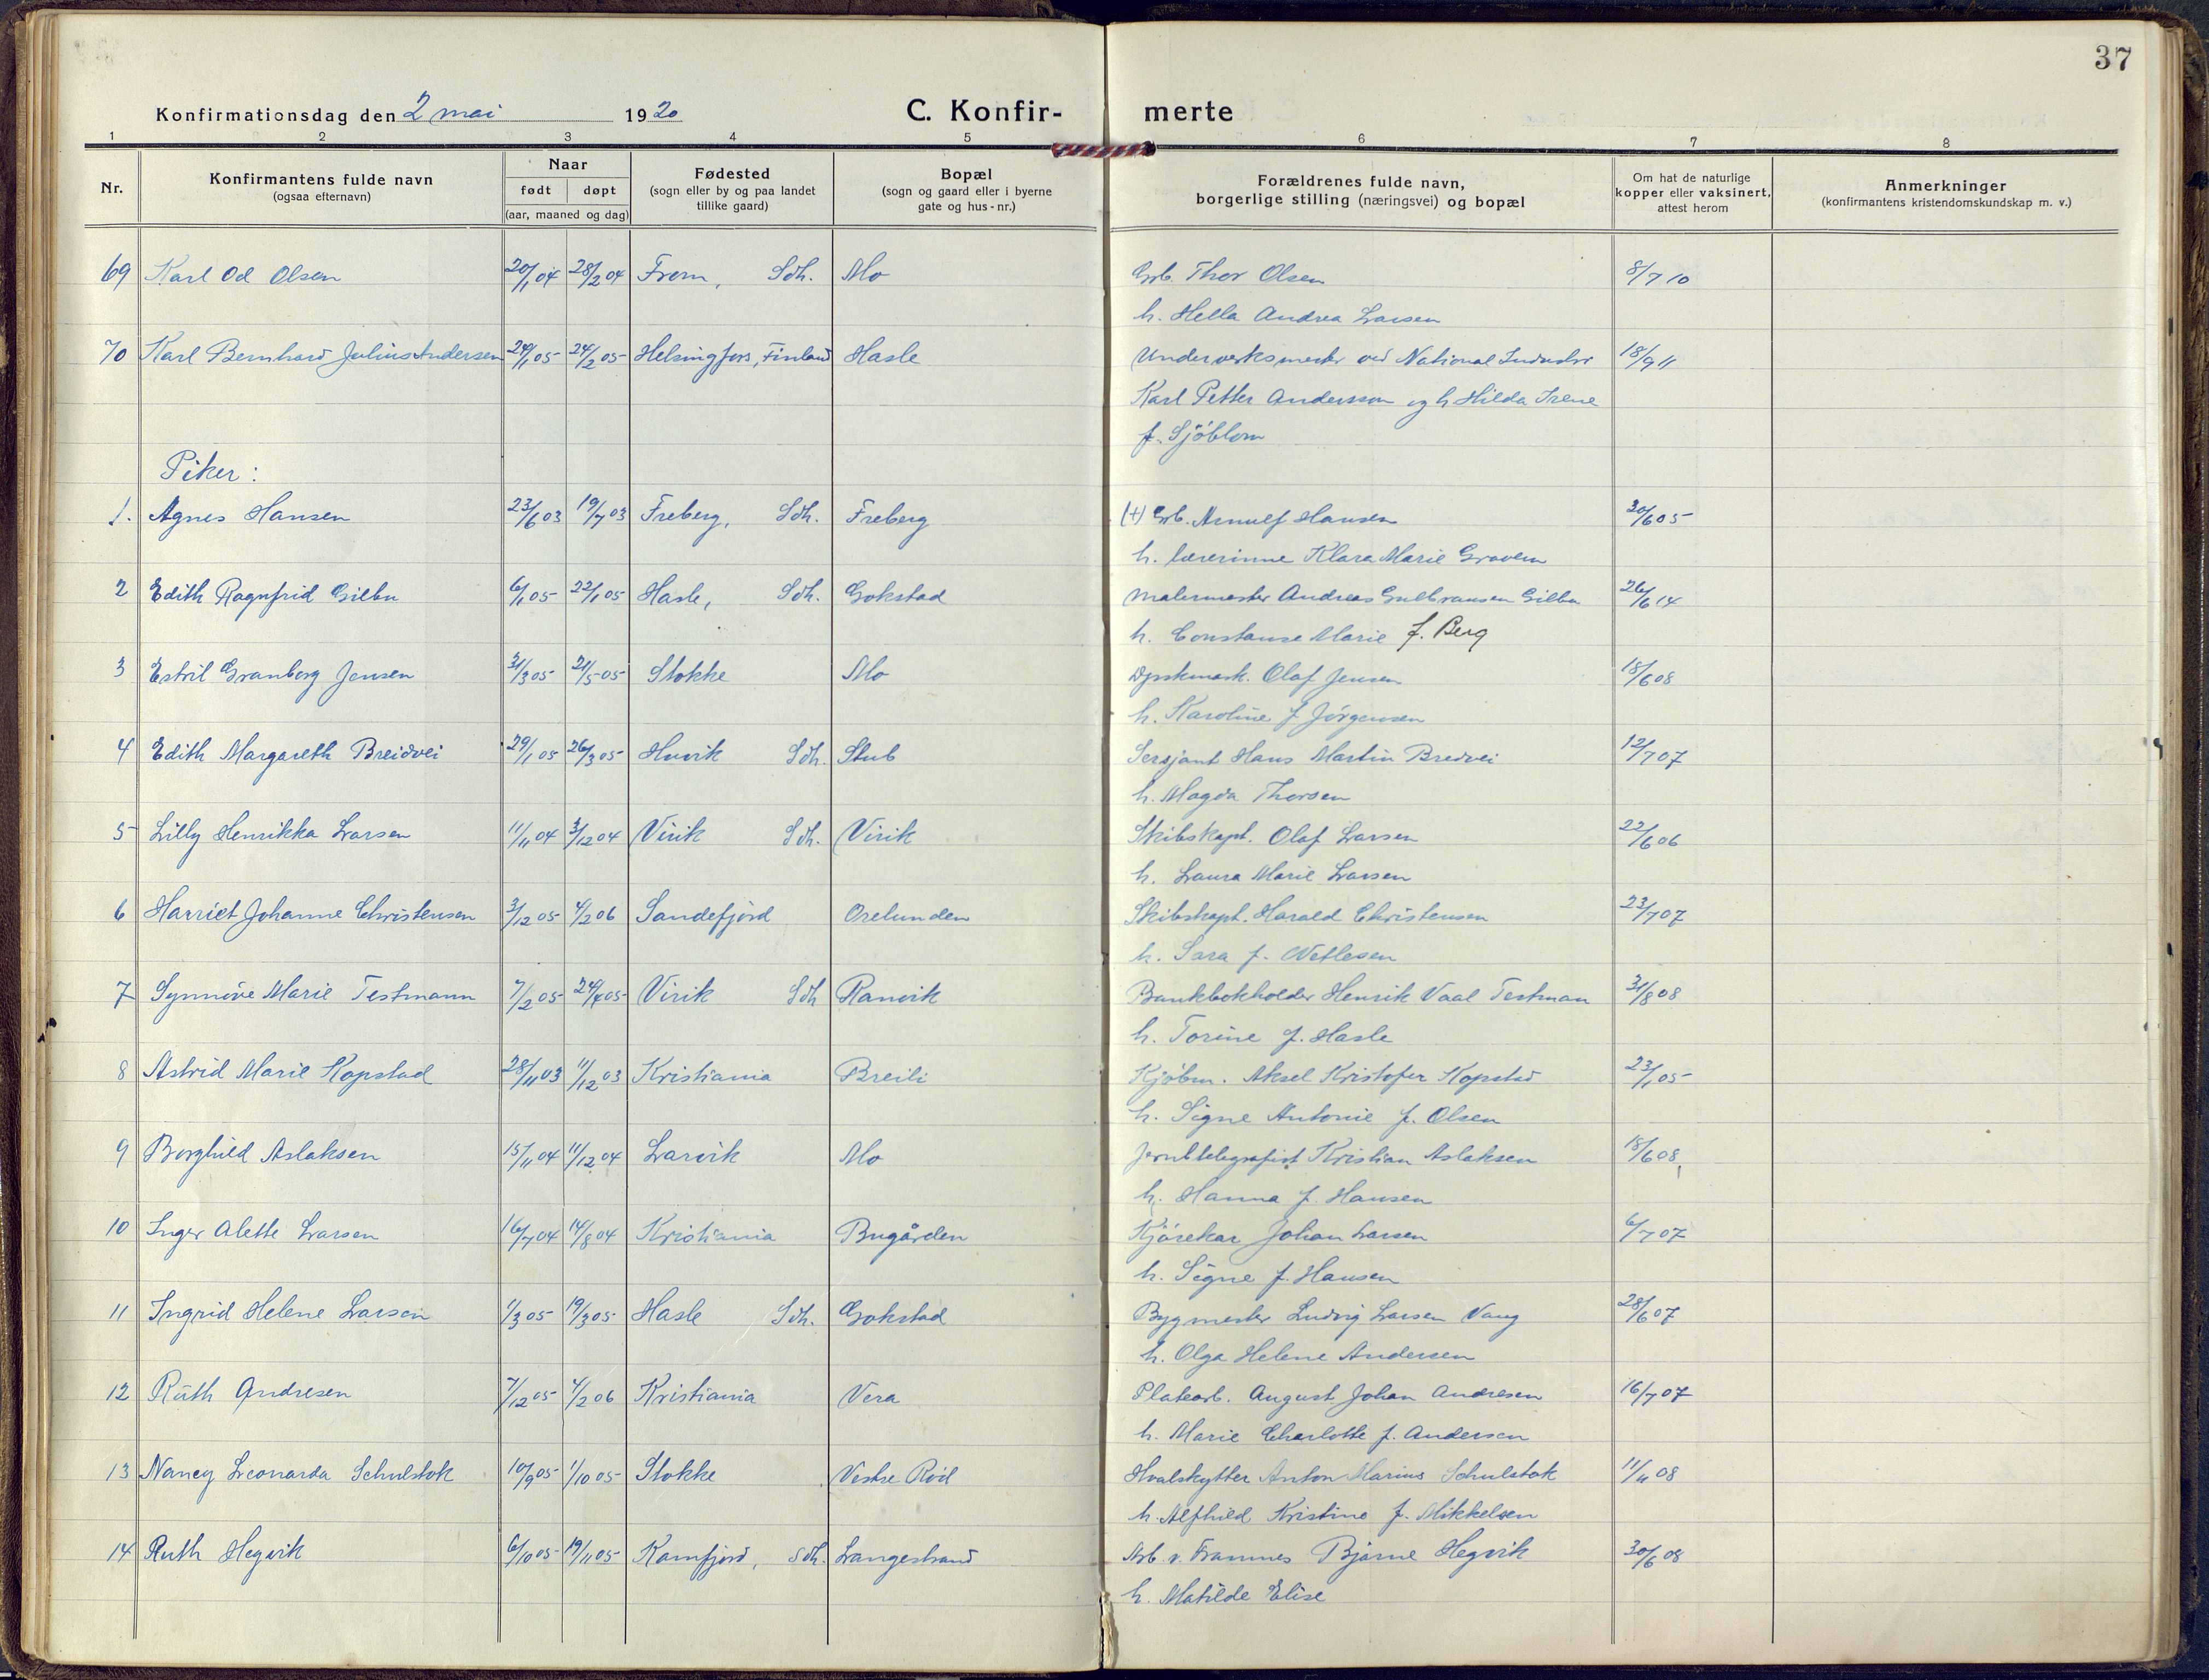 37
Konfirmationsdag den 2 mai 1920 C. Konfir- merte
1 2 3 4 5 6 7 8
Nr. Konfirmantens fulde navn (ogsaa efternavn) Naar født døpt (aar, maaned og dag) Fødested (sogn eller by og paa landet tillike gaard) Bopæl (sogn og gaard eller i byerne gate og hus-nr.) Forældrenes fulde navn, borgerlige stilling (næringsvei) og bopæl Om hat de naturlige kopper eller vaksinert, attest herom Anmerkninger (konfirmantens kristendomskundskap m. v.)
69 Karl Od Olsen 20/1 04 28/2 04 From, Sdh. Mo Thor Olsen 8/7 10
h. Hella Andrea Larsen
70 Karl Bernhard Julius Andersen 24/1 05 24/2 05 Helsingfors, Finland Hasle Underverksmester ved National Industri 18/9 11
Karl Petter Andersson og h Hilda Irene
f. Sjöblom
Piker:
1. Agnes Hansen 23/6 03 19/7 03 Freberg, Sdh. Freberg (+) Arnulf Hansen 30/6 05
h. lærerinne Klara Marie Gravem
2 Edith Ragnfrid Gilbu 6/1 05 22/1 05 Hasle, Sdh. Gokstad Malermester Andreas Gulbransen Gilbu 26/6 14
h. Constanse Marie f. Berg
3 Estril Granberg Jensen 31/3 05 21/5 05 Stokke Mo Olaf Jensen 18/6 08
h. Karoline f Jörgensen
4 Edith Margareth Breidvei 29/1 05 26/3 05 Huvik Sdh. Stub Sersjant Hans Martin Bredvei 12/7 07
h. Magda Thorsen
5 Lilly Henrikka Larsen 11/11 04 3/12 04 Virik Sdh. Virik Skibskapt. Olaf Larsen 22/6 06
h. Laura Marie Larsen
6 Harriet Johanne Christensen 3/12 05 4/2 06 Sandefjord Orelunden Skibskapt. Harald Christensen 23/7 07
h. Sara f. Wetlesen
7 Synnöve Marie Testmann 7/2 05 24/4 05 Virik Sdh Ranvik Bankbokholder Henrik Vaal Testman 31/8 08
h. Torine f. Hasle
8 Astrid Marie Kopstad 28/11 03 11/12 03 Kristiania Breili Kjöbm. Aksel Kristofer Kopstad 23/1 05
h. Signe Antonie f. Olsen
9 Borghild Aslaksen 15/11 04 11/12 04 Larvik Mo Jernbtelegrafist Kristian Aslaksen 18/6 08
h. Hanna f. Hansen
10 Inger Alette Larsen 16/7 04 14/8 04 Kristiania Bugården Kjörekar Johan Larsen 6/7 07
h. Signe f. Hansen
11 Ingrid Helene Larsen 1/3 05 19/3 05 Hasle Sdh. Gokstad Bygmester Ludvig Larsen Vang 28/6 07
h. Olga Helene Andersen
12 Ruth Andresen 7/12 05 4/2 06 Kristiania Vera Platearb. August Johan Andresen 16/7 07
h. Marie Charlotte f. Andersen
13 Nancy Leonarda Schulstok 10/9 05 1/10 05 Stokke Vestre Röd Hvalskytter Anton Marius Schulstok 11/11 08
h. Alfhild Kristine f. Mikkelsen
14 Ruth Hegvik 6/10 05 19/11 05 Kamfjord, Sdh. Langestrand Arb. v. Framnes Bjarne Hegvik 30/6 08
h. Matilde Elise